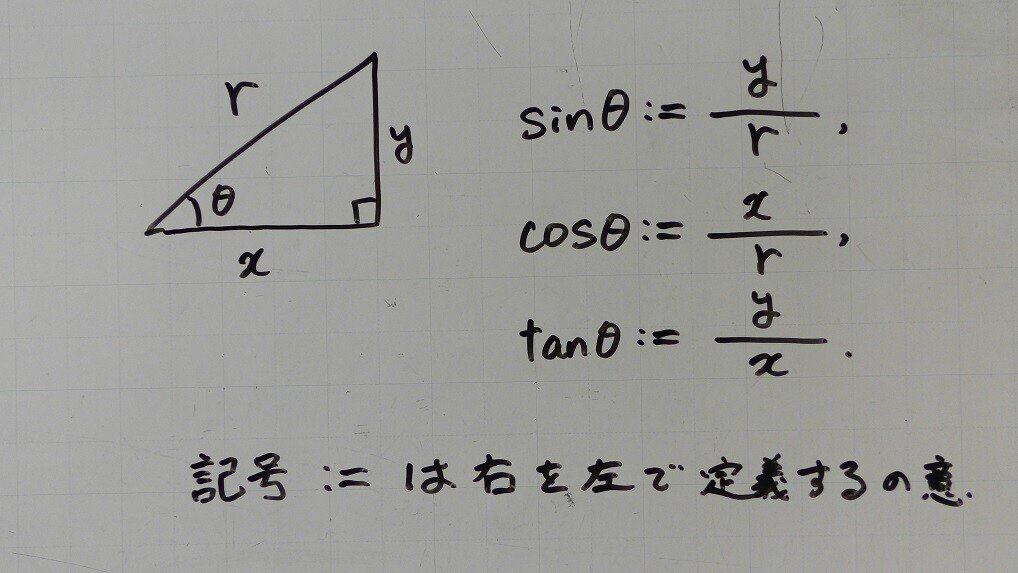 r
y
θ
x
sinθ := y/r ,
cosθ := x/r ,
tanθ := y/x .
記号 := は右を左で定義するの意.